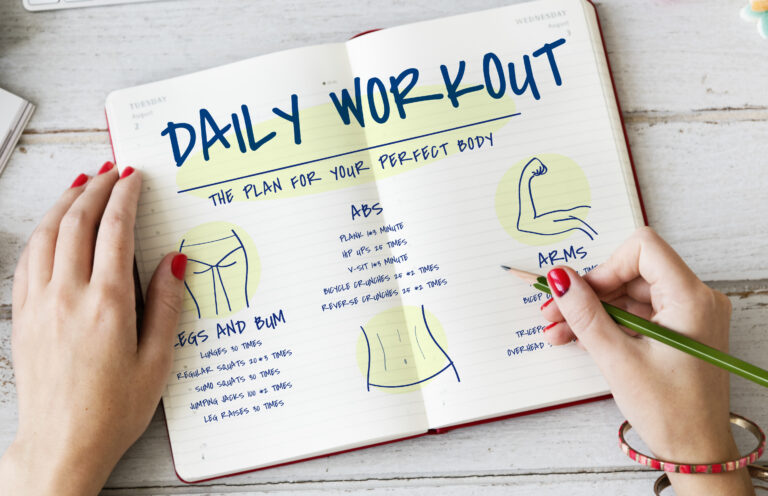 TUESDAY
August
2
WEDNESDAY
August
DAILY WORKOUT
THE PLAN FOR YOUR PERFECT BODY
LEGS AND BUM
LUNGES 30 TIMES
REGULAR SQUATS 20 *3 TIMES
SUMO SQUATS 30 TIMES
JUMPING JACKS 100 *2 TIMES
LEG RAISES 30 TIMES
ABS
PLANK 1*3 MINUTE
HIP UPS 25 TIMES
V-SIT 1*3 MINUTE
BICYCLE CRUNCHES 25 *2 TIMES
REVERSE CRUNCHES 25 *2 TIMES
ARMS
BICEP
TRICEPS
OVERHEAD